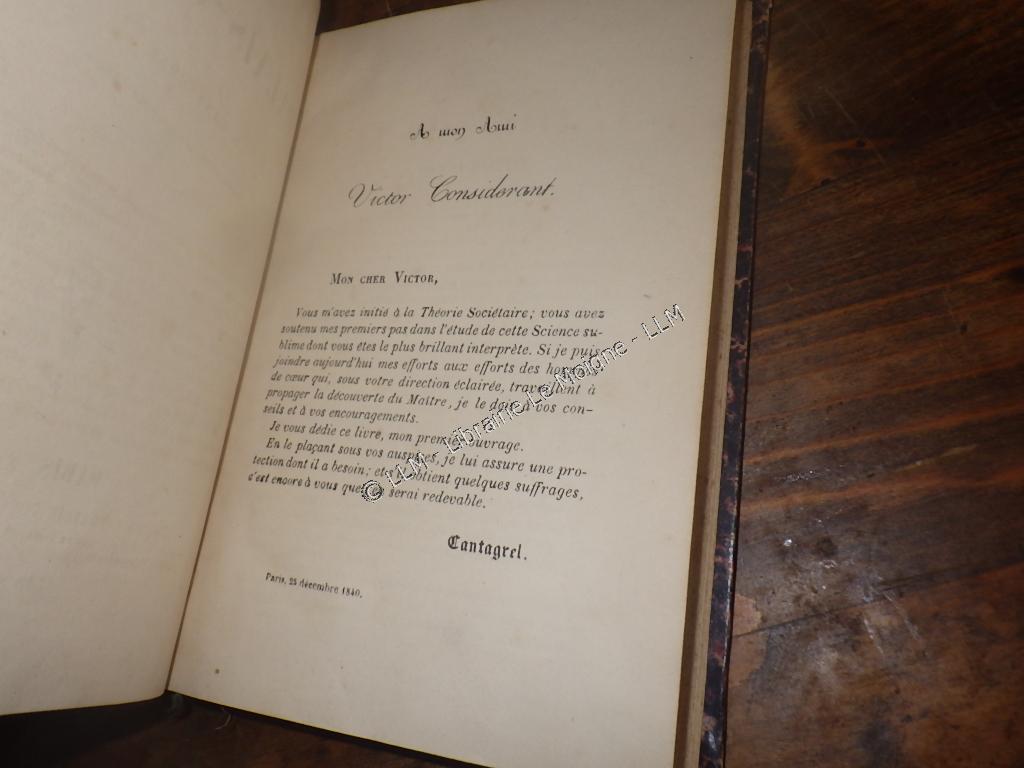 A mon Ami
Victor Considerant.
MON CHER VICTOR,
Vous m'avez initié à la Théorie Sociétaire; vous avez
soutenu mes premiers pas dans l'étude de cette Science su-
blime dont vous êtes le plus brillant interprète. Si je puis
joindre aujourd'hui mes efforts aux efforts des hommes
de cœur qui, sous votre direction éclairée, travaillent à
propager la découverte du Maître, je le dois à vos con-
seils et à vos encouragements.
Je vous dédie ce livre, mon premier ouvrage.
En le plaçant sous vos auspices, je lui assure une pro-
tection dont il a besoin; et obtient quelques suffrages,
c'est encore à vous que serai redevable.
Cantagrel.
Paris, 25 décembre 1840.
© LLM - Librairie Le Moigne - LLM